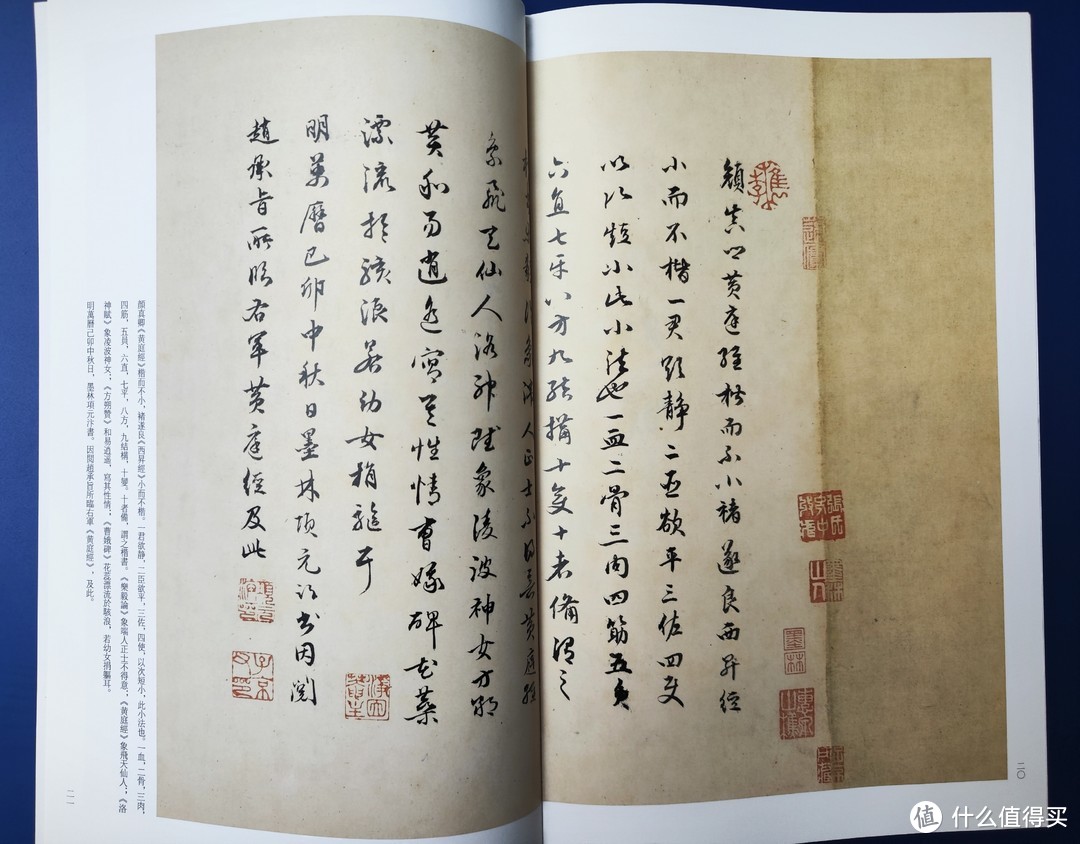 顔真卿黃庭經楷而不小褚遂良西昇經
小而不楷一君欲静二臣欲平三佐四使
以次短小此小法也一血二骨三肉四筋五貝
六直七平八方九結構十變十者備謂之
人正士不得意黃庭經
象飛天仙人洛神賦象凌波神女方朔
贊和易逍遙寫其性情曹娥碑花蘂
漂流於駭浪若幼女捐軀耳
明萬曆己卯中秋日墨林項元汴書因閱
趙承旨所臨右軍黃庭經及此
墨林
子京父印
項元汴印
顏真卿《黃庭經》楷而不小,褚遂良《西昇經》小而不楷。一君欲静,二臣欲平,三佐、四使,以次短小,此小法也。一血,二骨,三肉,
四筋,五貝,六直,七平,八方,九結構,十變。十者備,謂之楷書。《樂毅論》象端人正士不得意,《黃庭經》象飛天仙人,《洛
神賦》象凌波神女,《方朔贊》和易逍遙,寫其性情,《曹娥碑》花蕊漂流於駭浪,若幼女捐軀耳。
明萬曆己卯中秋日,墨林項元汴書。因閱趙承旨所臨右軍《黃庭經》,及此。
二〇
二一
值 什么值得买